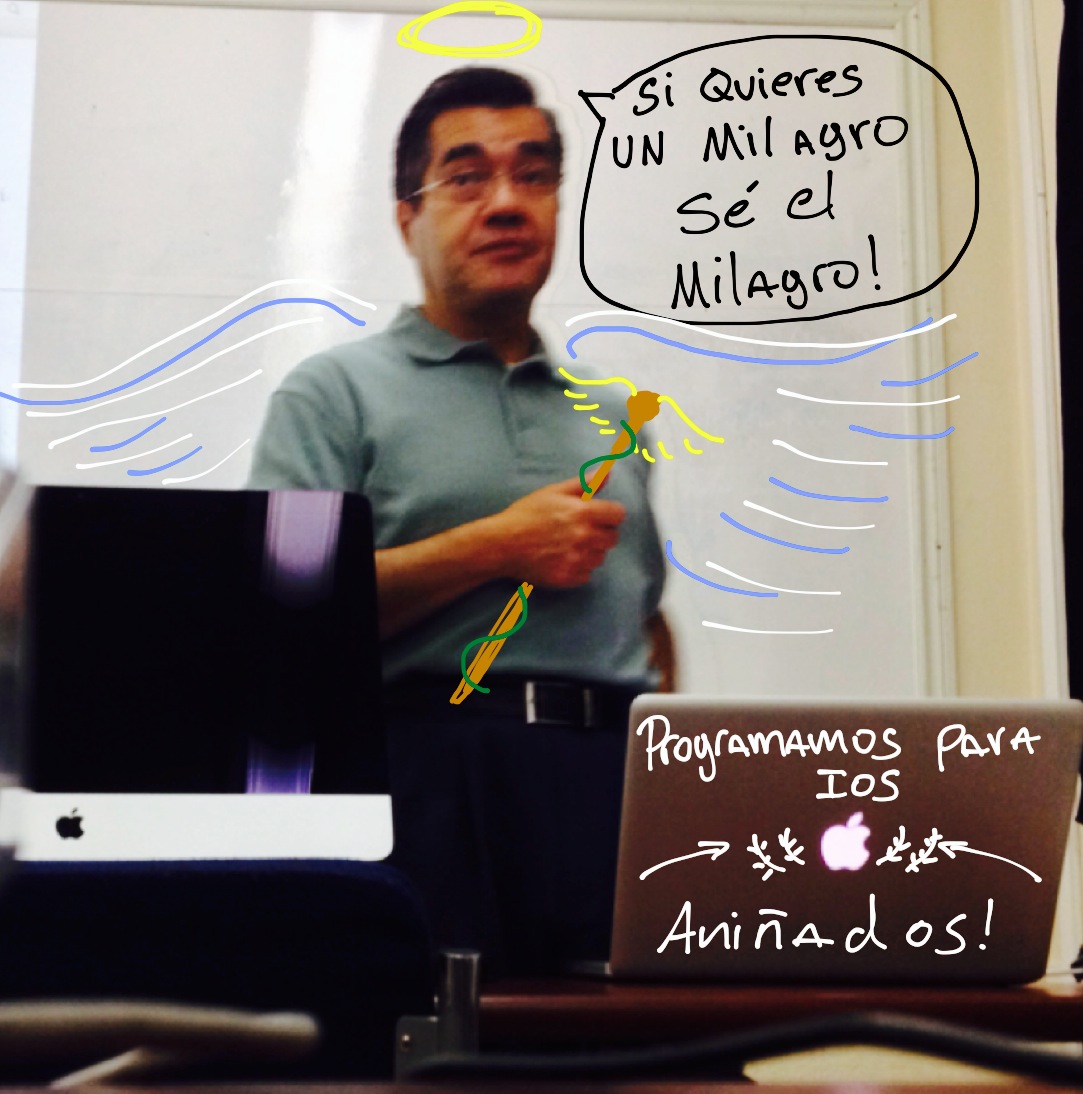 Si Quieres
UN MilAgrO
Sé el
MilAgro!
ProgrAMAMOS PArA
IOS
AniñAdos!